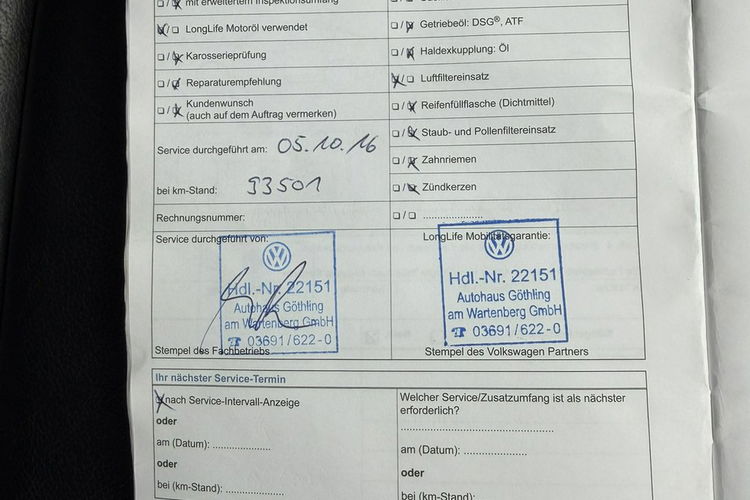 ❏/❏ mit erweitertem Inspektionsumfang
❏/❏ LongLife Motoröl verwendet
❏/❏ Karosserieprüfung
❏/❏ Reparaturempfehlung
❏/❏ Kundenwunsch
(auch auf dem Auftrag vermerken)
Service durchgeführt am: 05.10.16
bei km-Stand: 93501
Rechnungsnummer:
❏/❏ Getriebeöl: DSG®, ATF
❏/❏ Haldexkupplung: Öl
❏/❏ Luftfiltereinsatz
❏/❏ Reifenfüllflasche (Dichtmittel)
❏/❏ Staub- und Pollenfiltereinsatz
❏/❏ Zahnriemen
❏/❏ Zündkerzen
❏/❏ .......................
Service durchgeführt von:
VW
Hdl.-Nr. 22151
Autohaus Göthling
am Wartenberg GmbH
☎ 03691/622-0
Stempel des Fachbetriebs
LongLife Mobilitätsgarantie:
VW
Hdl.-Nr. 22151
Autohaus Göthling
am Wartenberg GmbH
☎ 03691/622-0
Stempel des Volkswagen Partners
Ihr nächster Service-Termin
❏ nach Service-Intervall-Anzeige
oder
am (Datum): .....................
oder
bei (km-Stand): .....................
Welcher Service/Zusatzumfang ist als nächster
erforderlich?
..............................................
am (Datum): .......................
oder
bei (km-Stand):